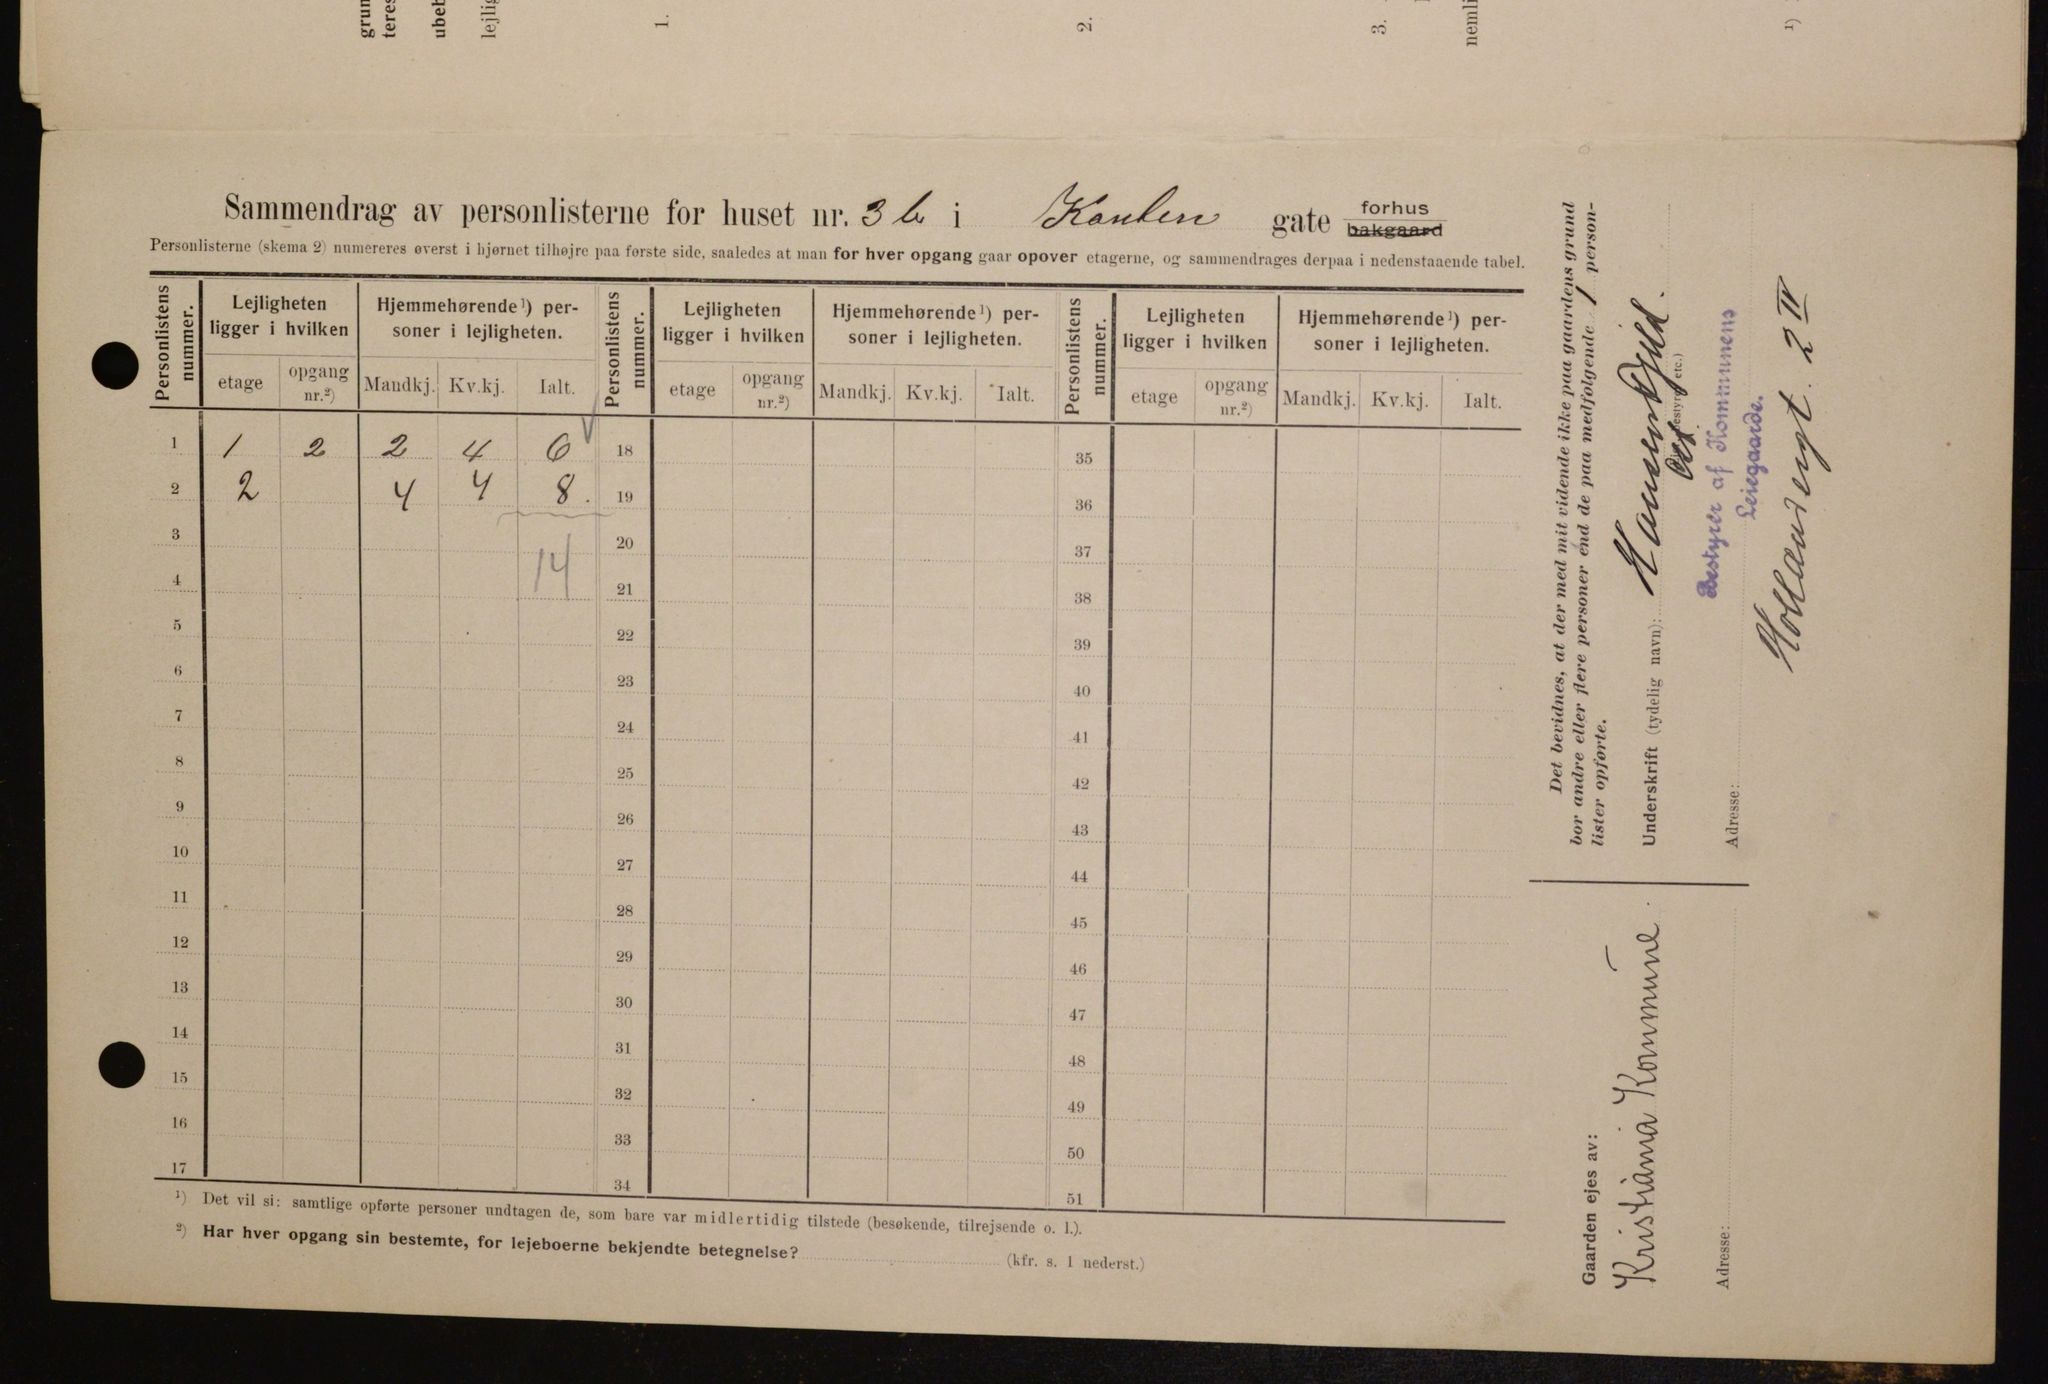 grun
teres
ubeb
lejlig
1.
2.
3.
nemli
1)
Sammendrag av personlisterne for huset nr. 3 b i Kanten gate forhus bakgaard
Personlisterne (skema 2) numereres øverst i hjørnet tilhøjre paa første side, saaledes at man for hver opgang gaar opover etagerne, og sammendrages derpaa i nedenstaaende tabel.
Personlistens nummer. Lejligheten ligger i hvilken Hjemmehørende 1) personer i lejligheten. Personlistens nummer. Lejligheten ligger i hvilken Hjemmehørende 1) personer i lejligheten. Personlistens nummer. Lejligheten ligger i hvilken Hjemmehørende 1) personer i lejligheten.
etage opgang nr. 2) Mandkj. Kv.kj. Ialt. etage opgang nr. 2) Mandkj. Kv.kj. Ialt. etage opgang nr. 2) Mandkj. Kv.kj. Ialt.
1 1 2 2 4 6 18 35
2 2 4 4 8. 19 36
3 20 37
14
4 21 38
5 22 39
6 23 40
7 24 41
8 25 42
9 26 43
10 27 44
11 28 45
12 29 46
13 30 47
14 31 48
15 32 49
16 33 50
17 34 51
1) Det vil si: samtlige opførte personer undtagen de, som bare var midlertidig tilstede (besøkende, tilrejsende o. l.).
2) Har hver opgang sin bestemte, for lejeboerne bekjendte betegnelse? (kfr. s. 1 nederst.)
Det bevidnes, at der med mit vidende ikke paa gaardens grund
bor andre eller flere personer end de paa medfølgende 1 person-
lister opførte.
Underskrift (tydelig navn):
Bestyrer af Kommunens
Leiegaarde.
Adresse: 2 IV
Gaarden ejes av:
Kristiania Kommune
Adresse: